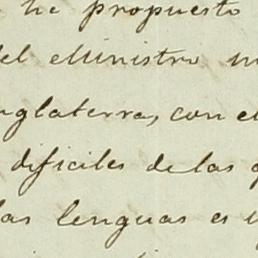 he propuesto
del Ministro
nglaterra, con el
dificiles de las
las lenguas es